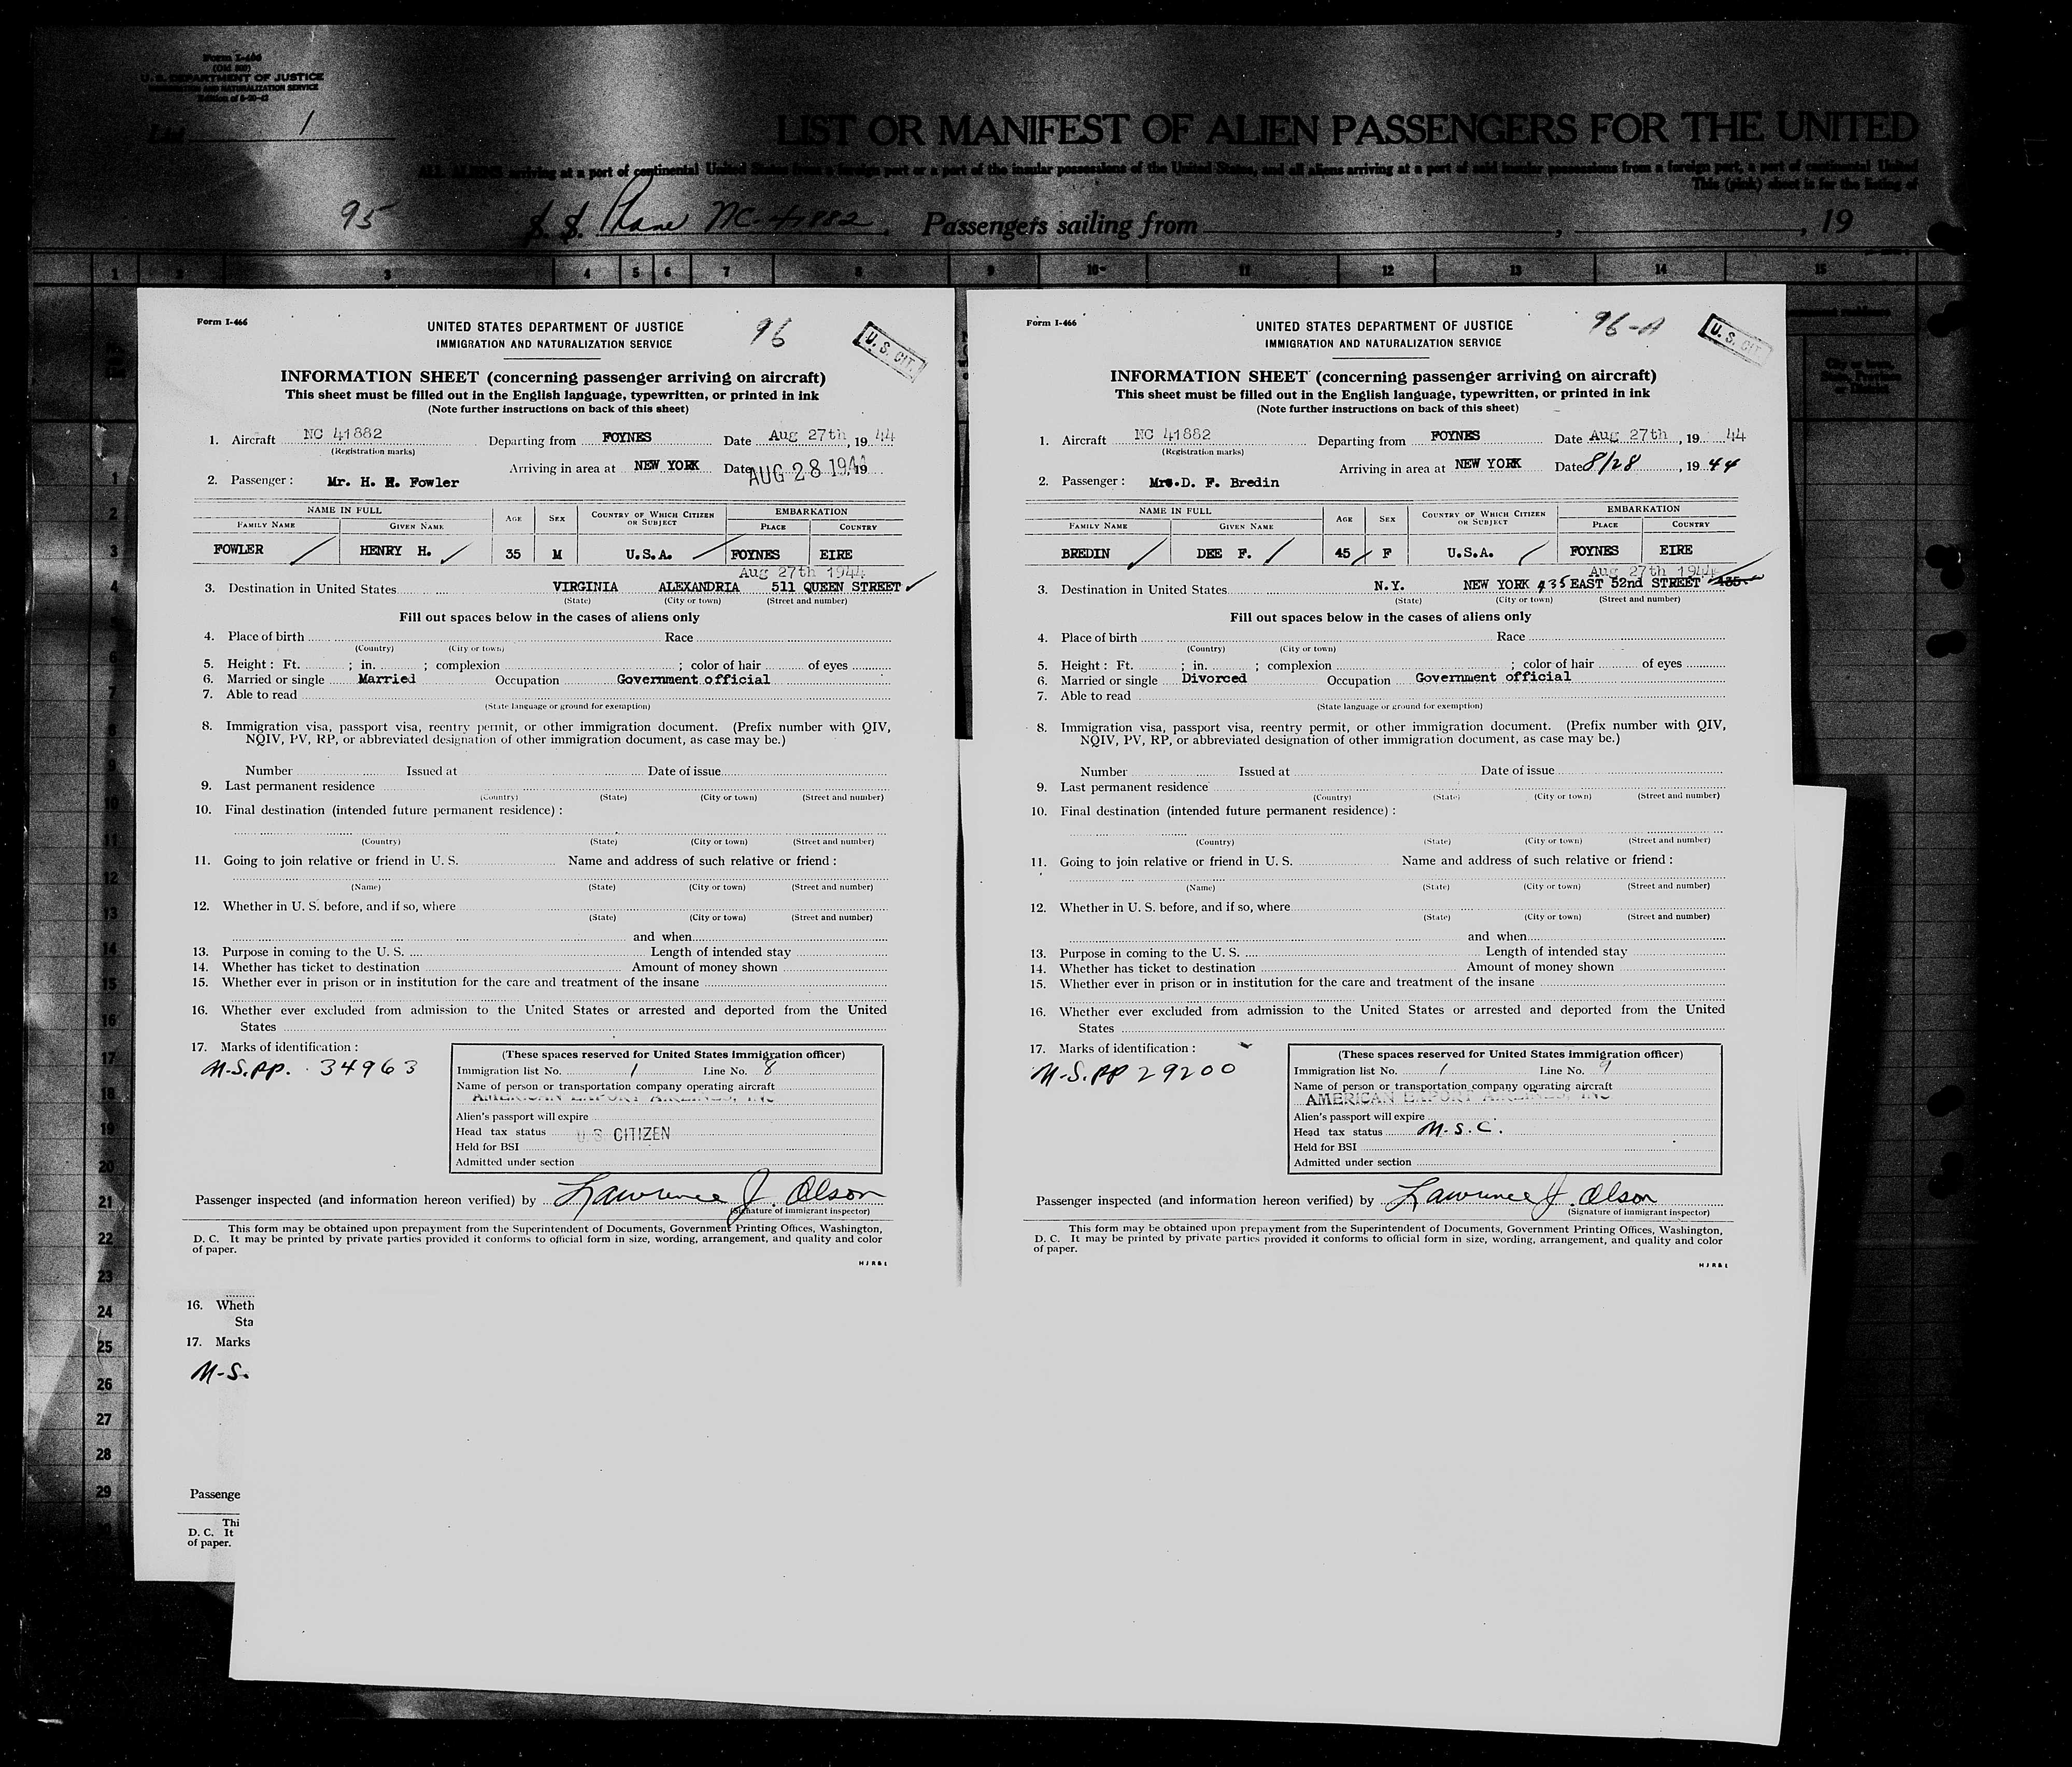 Form I-466
(Old 500)
U. S. DEPARTMENT OF JUSTICE
IMMIGRATION AND NATURALIZATION SERVICE
List 1
LIST OR MANIFEST OF ALIEN PASSENGERS FOR THE UNITED
ALL ALIENS arriving at a port of continental United States from a foreign port or a port of the insular possessions of the United States, and all aliens arriving at a port of said insular possessions from a foreign port, a port of continental United
This (pink) sheet is for the listing of
95 S. S. Plane NC-41882, Passengers sailing from , , 19
1 2 3 4 5 6 7 8 9 10 11 12 13 14 15
Form I-466
96
U. S. CIT.
UNITED STATES DEPARTMENT OF JUSTICE
IMMIGRATION AND NATURALIZATION SERVICE
INFORMATION SHEET (concerning passenger arriving on aircraft)
This sheet must be filled out in the English language, typewritten, or printed in ink
(Note further instructions on back of this sheet)
1. Aircraft NC 41882 Departing from FOYNES Date Aug 27th, 19 44
(Registration marks)
Arriving in area at NEW YORK Date AUG 28 1944, 19
2. Passenger: Mr. H. H. Fowler
NAME IN FULL AGE SEX COUNTRY OF WHICH CITIZEN OR SUBJECT EMBARKATION
FAMILY NAME GIVEN NAME PLACE COUNTRY
FOWLER HENRY H. 35 M U.S.A. FOYNES EIRE
Aug 27th 1944
3. Destination in United States VIRGINIA ALEXANDRIA 511 QUEEN STREET
(State) (City or town) (Street and number)
Fill out spaces below in the cases of aliens only
4. Place of birth Race
(Country) (City or town)
5. Height: Ft. ; in. ; complexion ; color of hair of eyes
6. Married or single Married Occupation Government official
7. Able to read
(State language or ground for exemption)
8. Immigration visa, passport visa, reentry permit, or other immigration document. (Prefix number with QIV,
NQIV, PV, RP, or abbreviated designation of other immigration document, as case may be.)
Number Issued at Date of issue
9. Last permanent residence
(Country) (State) (City or town) (Street and number)
10. Final destination (intended future permanent residence):
(Country) (State) (City or town) (Street and number)
11. Going to join relative or friend in U. S. Name and address of such relative or friend:
(Name) (State) (City or town) (Street and number)
12. Whether in U. S. before, and if so, where
(State) (City or town) (Street and number)
and when
13. Purpose in coming to the U. S. Length of intended stay
14. Whether has ticket to destination Amount of money shown
15. Whether ever in prison or in institution for the care and treatment of the insane
16. Whether ever excluded from admission to the United States or arrested and deported from the United
States
17. Marks of identification:
M-S.PP. 34963
(These spaces reserved for United States immigration officer)
Immigration list No. 1 Line No. 8
Name of person or transportation company operating aircraft
AMERICAN EXPORT AIRLINES, INC
Alien's passport will expire
Head tax status U S CITIZEN
Held for BSI
Admitted under section
Passenger inspected (and information hereon verified) by Lawrence J. Olson
(Signature of immigrant inspector)
This form may be obtained upon prepayment from the Superintendent of Documents, Government Printing Offices, Washington,
D. C. It may be printed by private parties provided it conforms to official form in size, wording, arrangement, and quality and color
of paper.
H J R & L
Form I-466
96-A
U. S. CIT.
UNITED STATES DEPARTMENT OF JUSTICE
IMMIGRATION AND NATURALIZATION SERVICE
INFORMATION SHEET (concerning passenger arriving on aircraft)
This sheet must be filled out in the English language, typewritten, or printed in ink
(Note further instructions on back of this sheet)
1. Aircraft NC 41882 Departing from FOYNES Date Aug 27th, 19 44
(Registration marks)
Arriving in area at NEW YORK Date 8/28, 19 44
2. Passenger: Mrs. D. F. Bredin
NAME IN FULL AGE SEX COUNTRY OF WHICH CITIZEN OR SUBJECT EMBARKATION
FAMILY NAME GIVEN NAME PLACE COUNTRY
BREDIN DEE F. 45 F U.S.A. FOYNES EIRE
Aug 27th 1944
3. Destination in United States N.Y. NEW YORK 435 EAST 52nd STREET 435
(State) (City or town) (Street and number)
Fill out spaces below in the cases of aliens only
4. Place of birth Race
(Country) (City or town)
5. Height: Ft. ; in. ; complexion ; color of hair of eyes
6. Married or single Divorced Occupation Government official
7. Able to read
(State language or ground for exemption)
8. Immigration visa, passport visa, reentry permit, or other immigration document. (Prefix number with QIV,
NQIV, PV, RP, or abbreviated designation of other immigration document, as case may be.)
Number Issued at Date of issue
9. Last permanent residence
(Country) (State) (City or town) (Street and number)
10. Final destination (intended future permanent residence):
(Country) (State) (City or town) (Street and number)
11. Going to join relative or friend in U. S. Name and address of such relative or friend:
(Name) (State) (City or town) (Street and number)
12. Whether in U. S. before, and if so, where
(State) (City or town) (Street and number)
and when
13. Purpose in coming to the U. S. Length of intended stay
14. Whether has ticket to destination Amount of money shown
15. Whether ever in prison or in institution for the care and treatment of the insane
16. Whether ever excluded from admission to the United States or arrested and deported from the United
States
17. Marks of identification:
M-S.PP 29200
(These spaces reserved for United States immigration officer)
Immigration list No. 1 Line No. 9
Name of person or transportation company operating aircraft
AMERICAN EXPORT AIRLINES, INC
Alien's passport will expire
Head tax status M.S.C.
Held for BSI
Admitted under section
Passenger inspected (and information hereon verified) by Lawrence J. Olson
(Signature of immigrant inspector)
This form may be obtained upon prepayment from the Superintendent of Documents, Government Printing Offices, Washington,
D. C. It may be printed by private parties provided it conforms to official form in size, wording, arrangement, and quality and color
of paper.
H J R & L
16. Wheth
Sta
17. Marks
M-S.
Passenge
Thi
D. C. It
of paper.
1
2
3
4
5
6
7
8
9
10
11
12
13
14
15
16
17
18
19
20
21
22
23
24
25
26
27
28
29